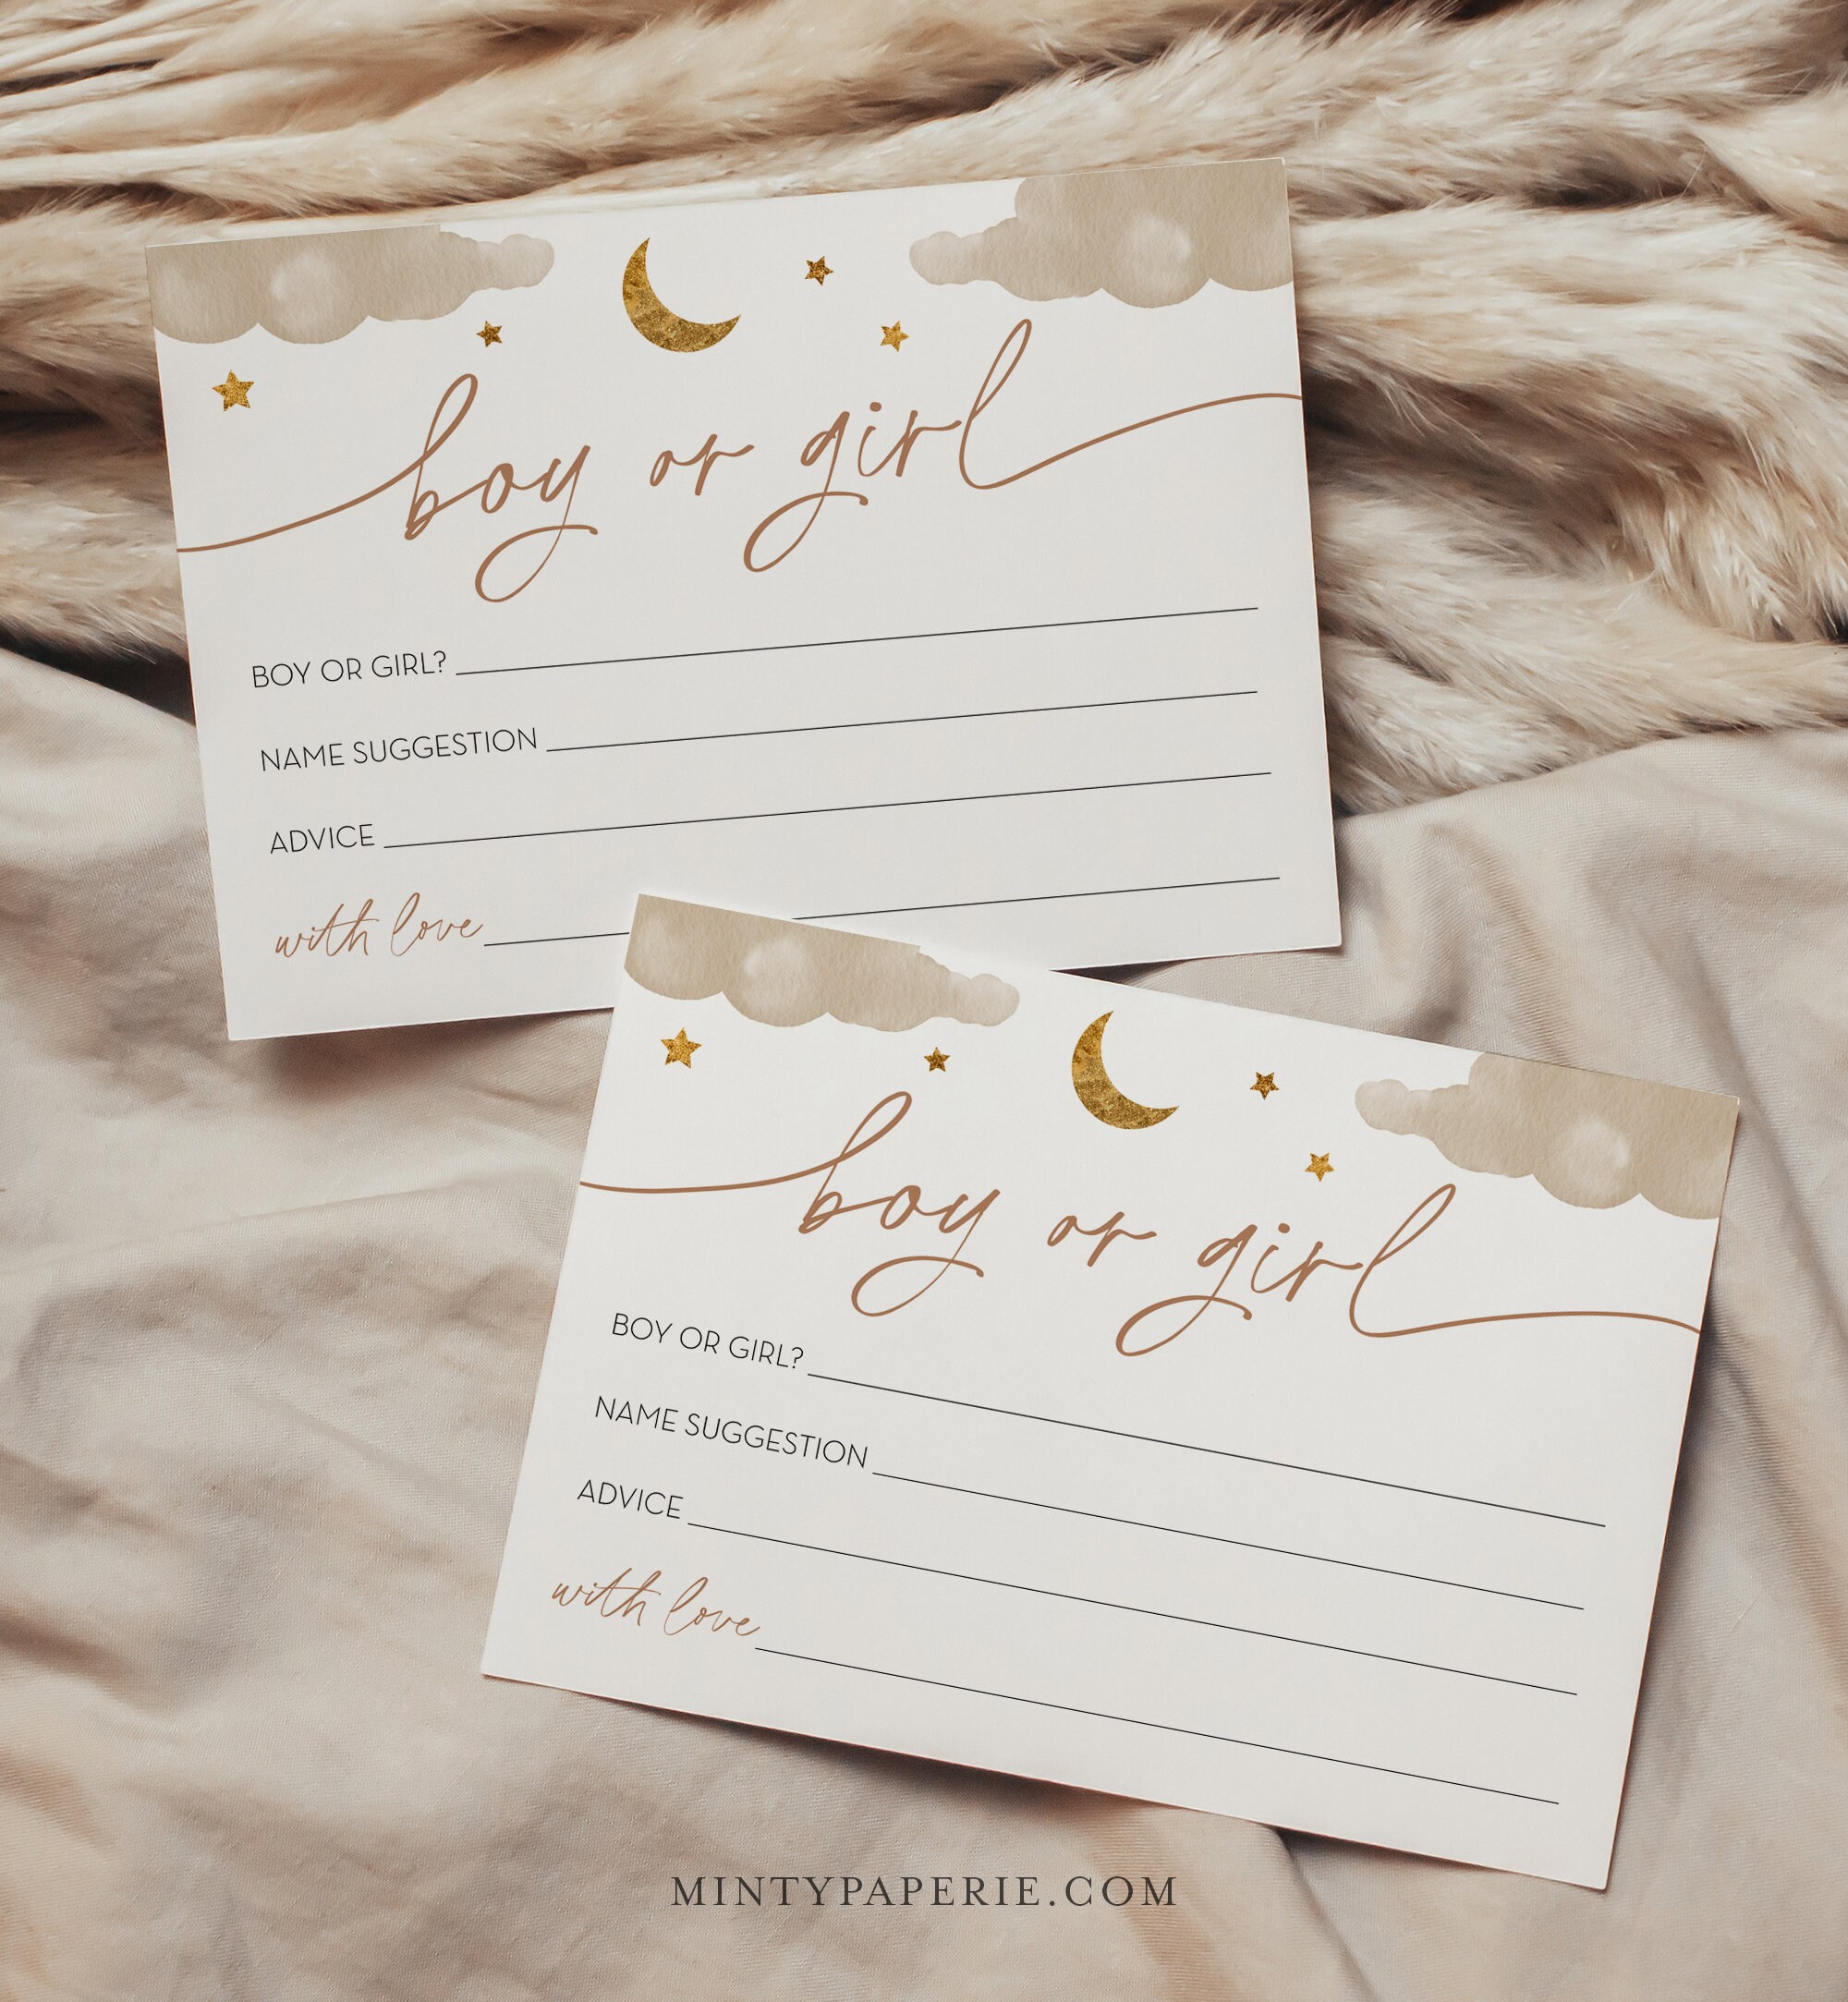 boy or girl
BOY OR GIRL?
NAME SUGGESTION
ADVICE
with love
boy or girl
BOY OR GIRL?
NAME SUGGESTION
ADVICE
with love
MINTYPAPERIE.COM